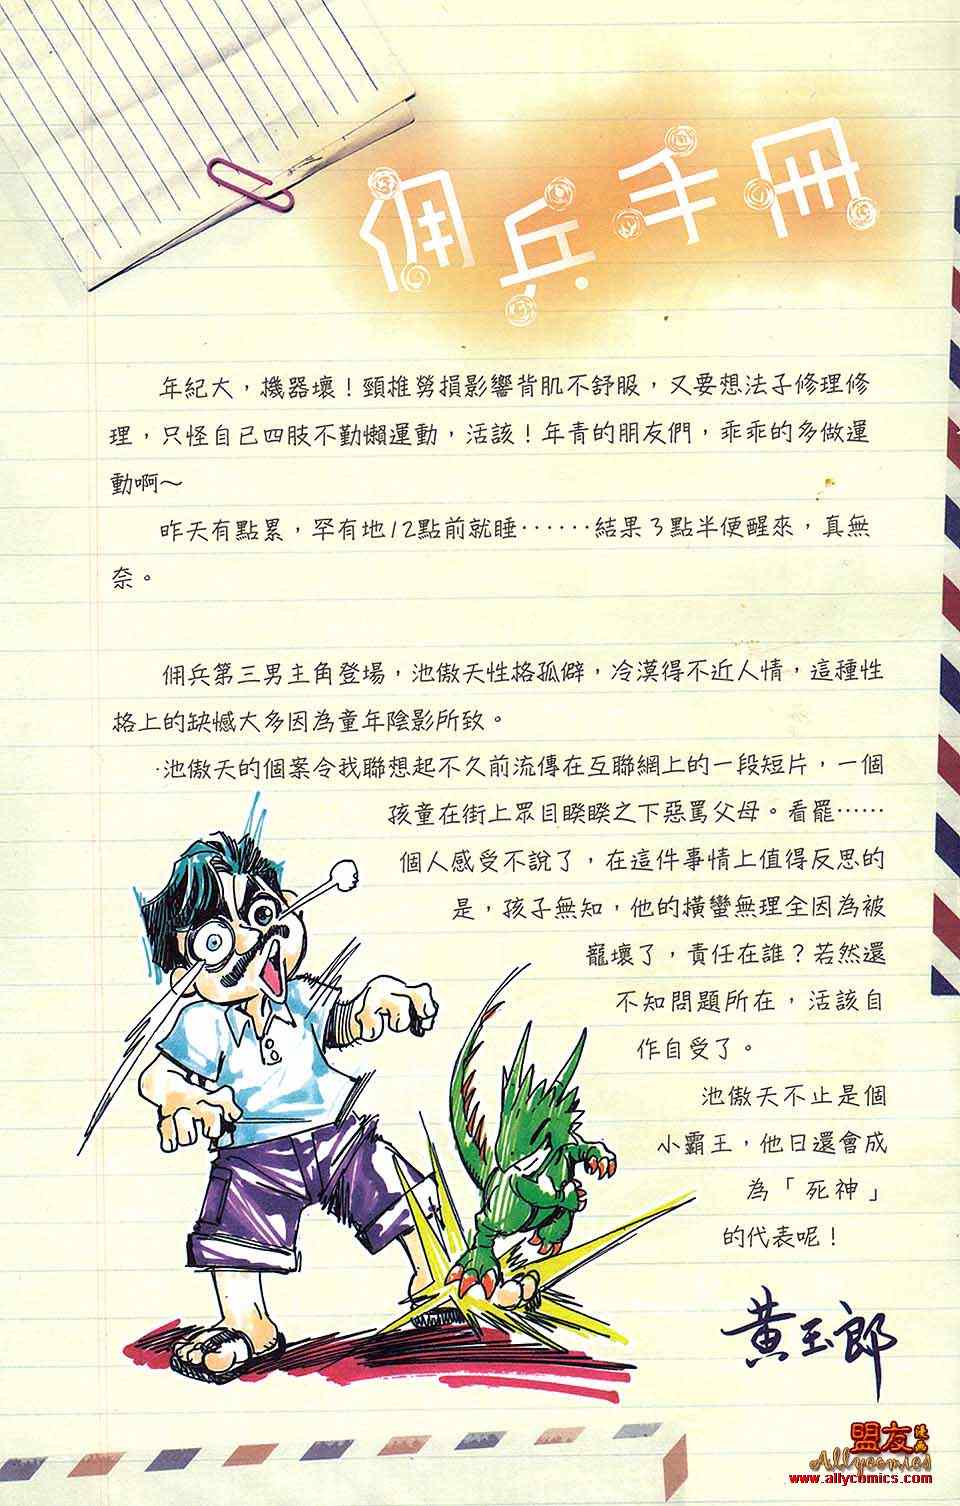 佣兵手冊
年紀大，機器壞！頸推勞損影響背肌不舒服，又要想法子修理修
理，只怪自己四肢不勤懶運動，活該！年青的朋友們，乖乖的多做運
動啊～
昨天有點累，罕有地12點前就睡⋯⋯結果3點半便醒來，真無
奈。
佣兵第三男主角登場，池傲天性格孤僻，冷漠得不近人情，這種性
格上的缺憾大多因為童年陰影所致。
池傲天的個案令我聯想起不久前流傳在互聯網上的一段短片，一個
孩童在街上眾目睽睽之下惡罵父母。看罷⋯⋯
個人感受不說了，在這件事情上值得反思的
是，孩子無知，他的橫蠻無理全因為被
寵壞了，責任在誰？若然還
不知問題所在，活該自
作自受了。
池傲天不止是個
小霸王，他日還會成
為「死神」
的代表呢！
黃玉郎
盟友漫画
Allycomics
www.allycomics.com